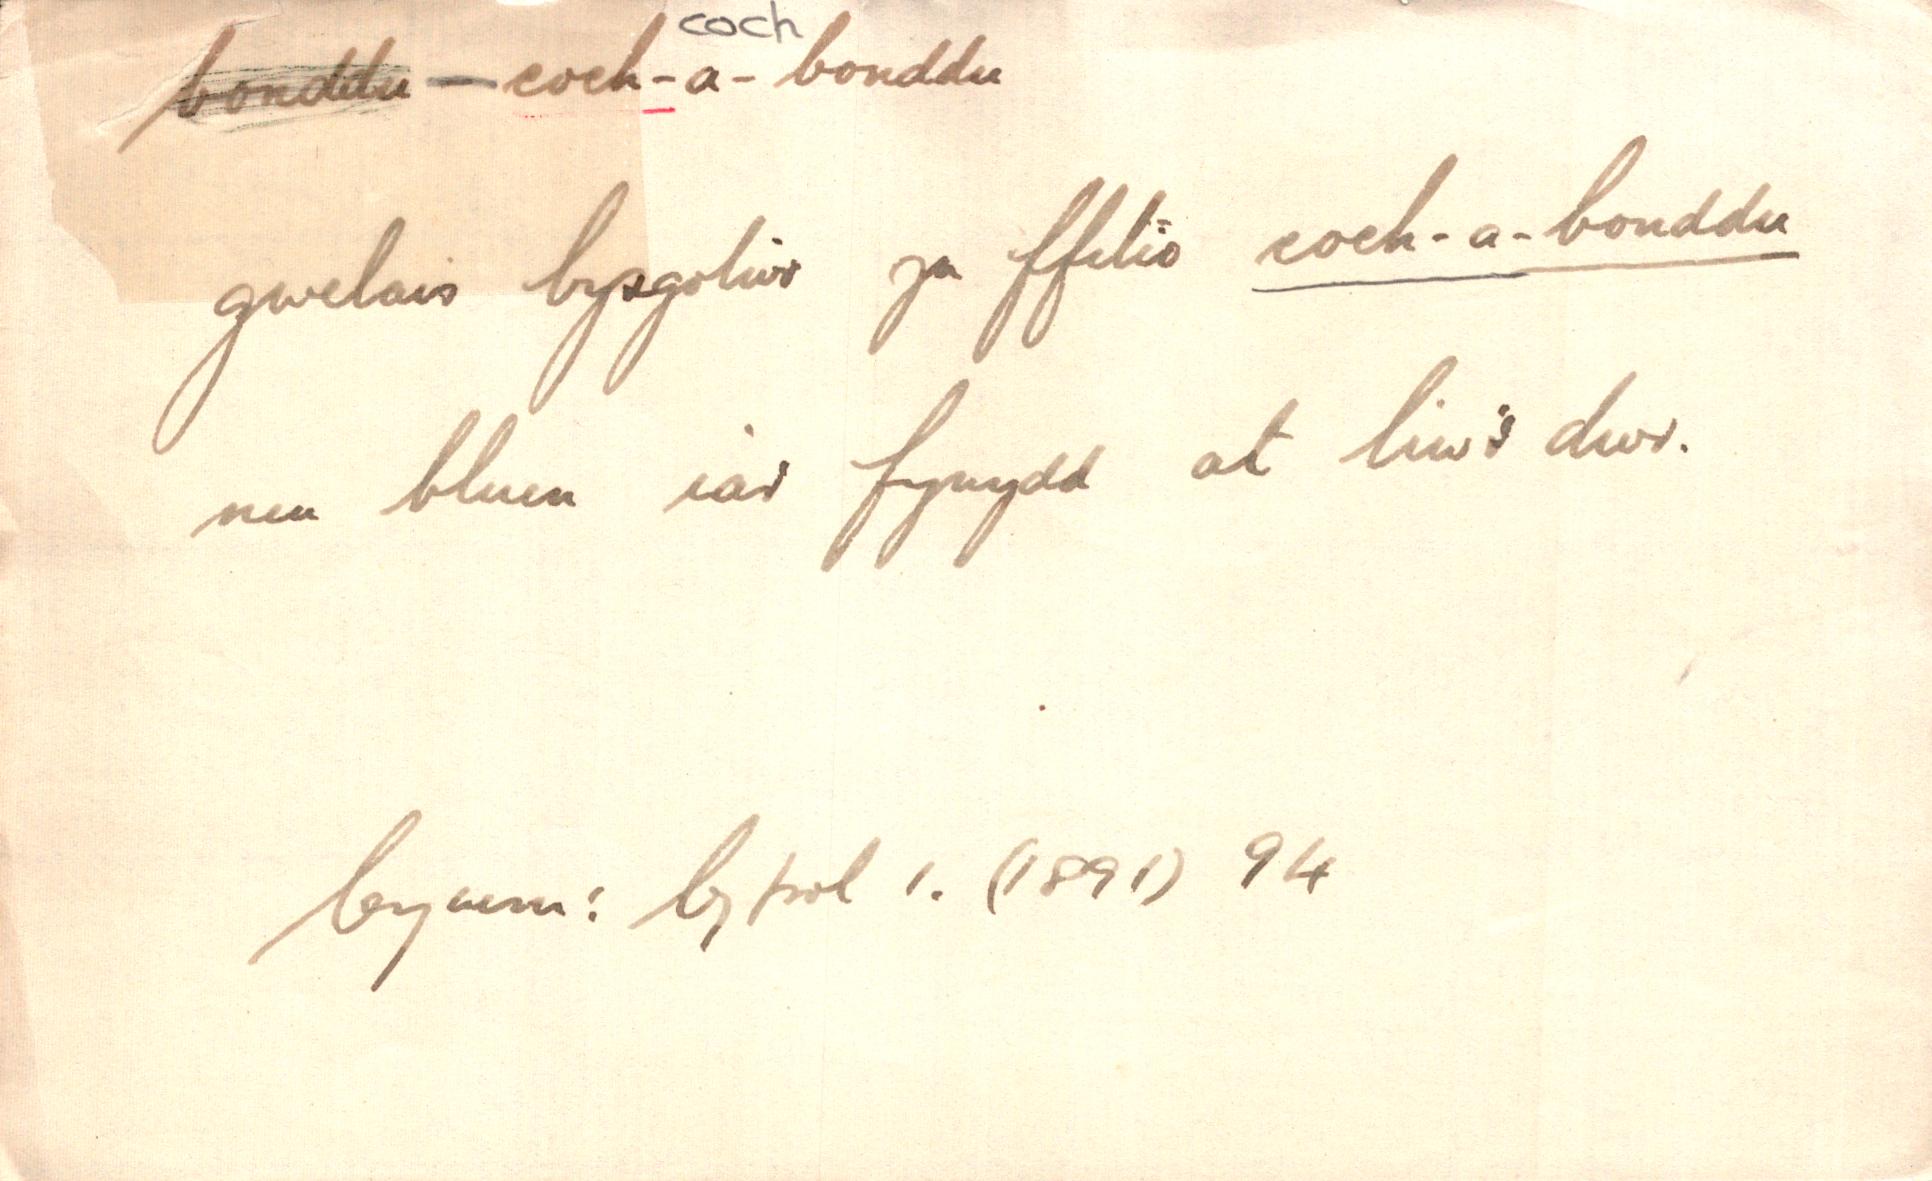 coch
bonddu — coch-a-bonddu
gwelais bysgotwr yn ffitio coch-a-bonddu
neu bluen iar fynydd at liw'r dwr.
Cymru: Cyfrol 1. (1891) 94